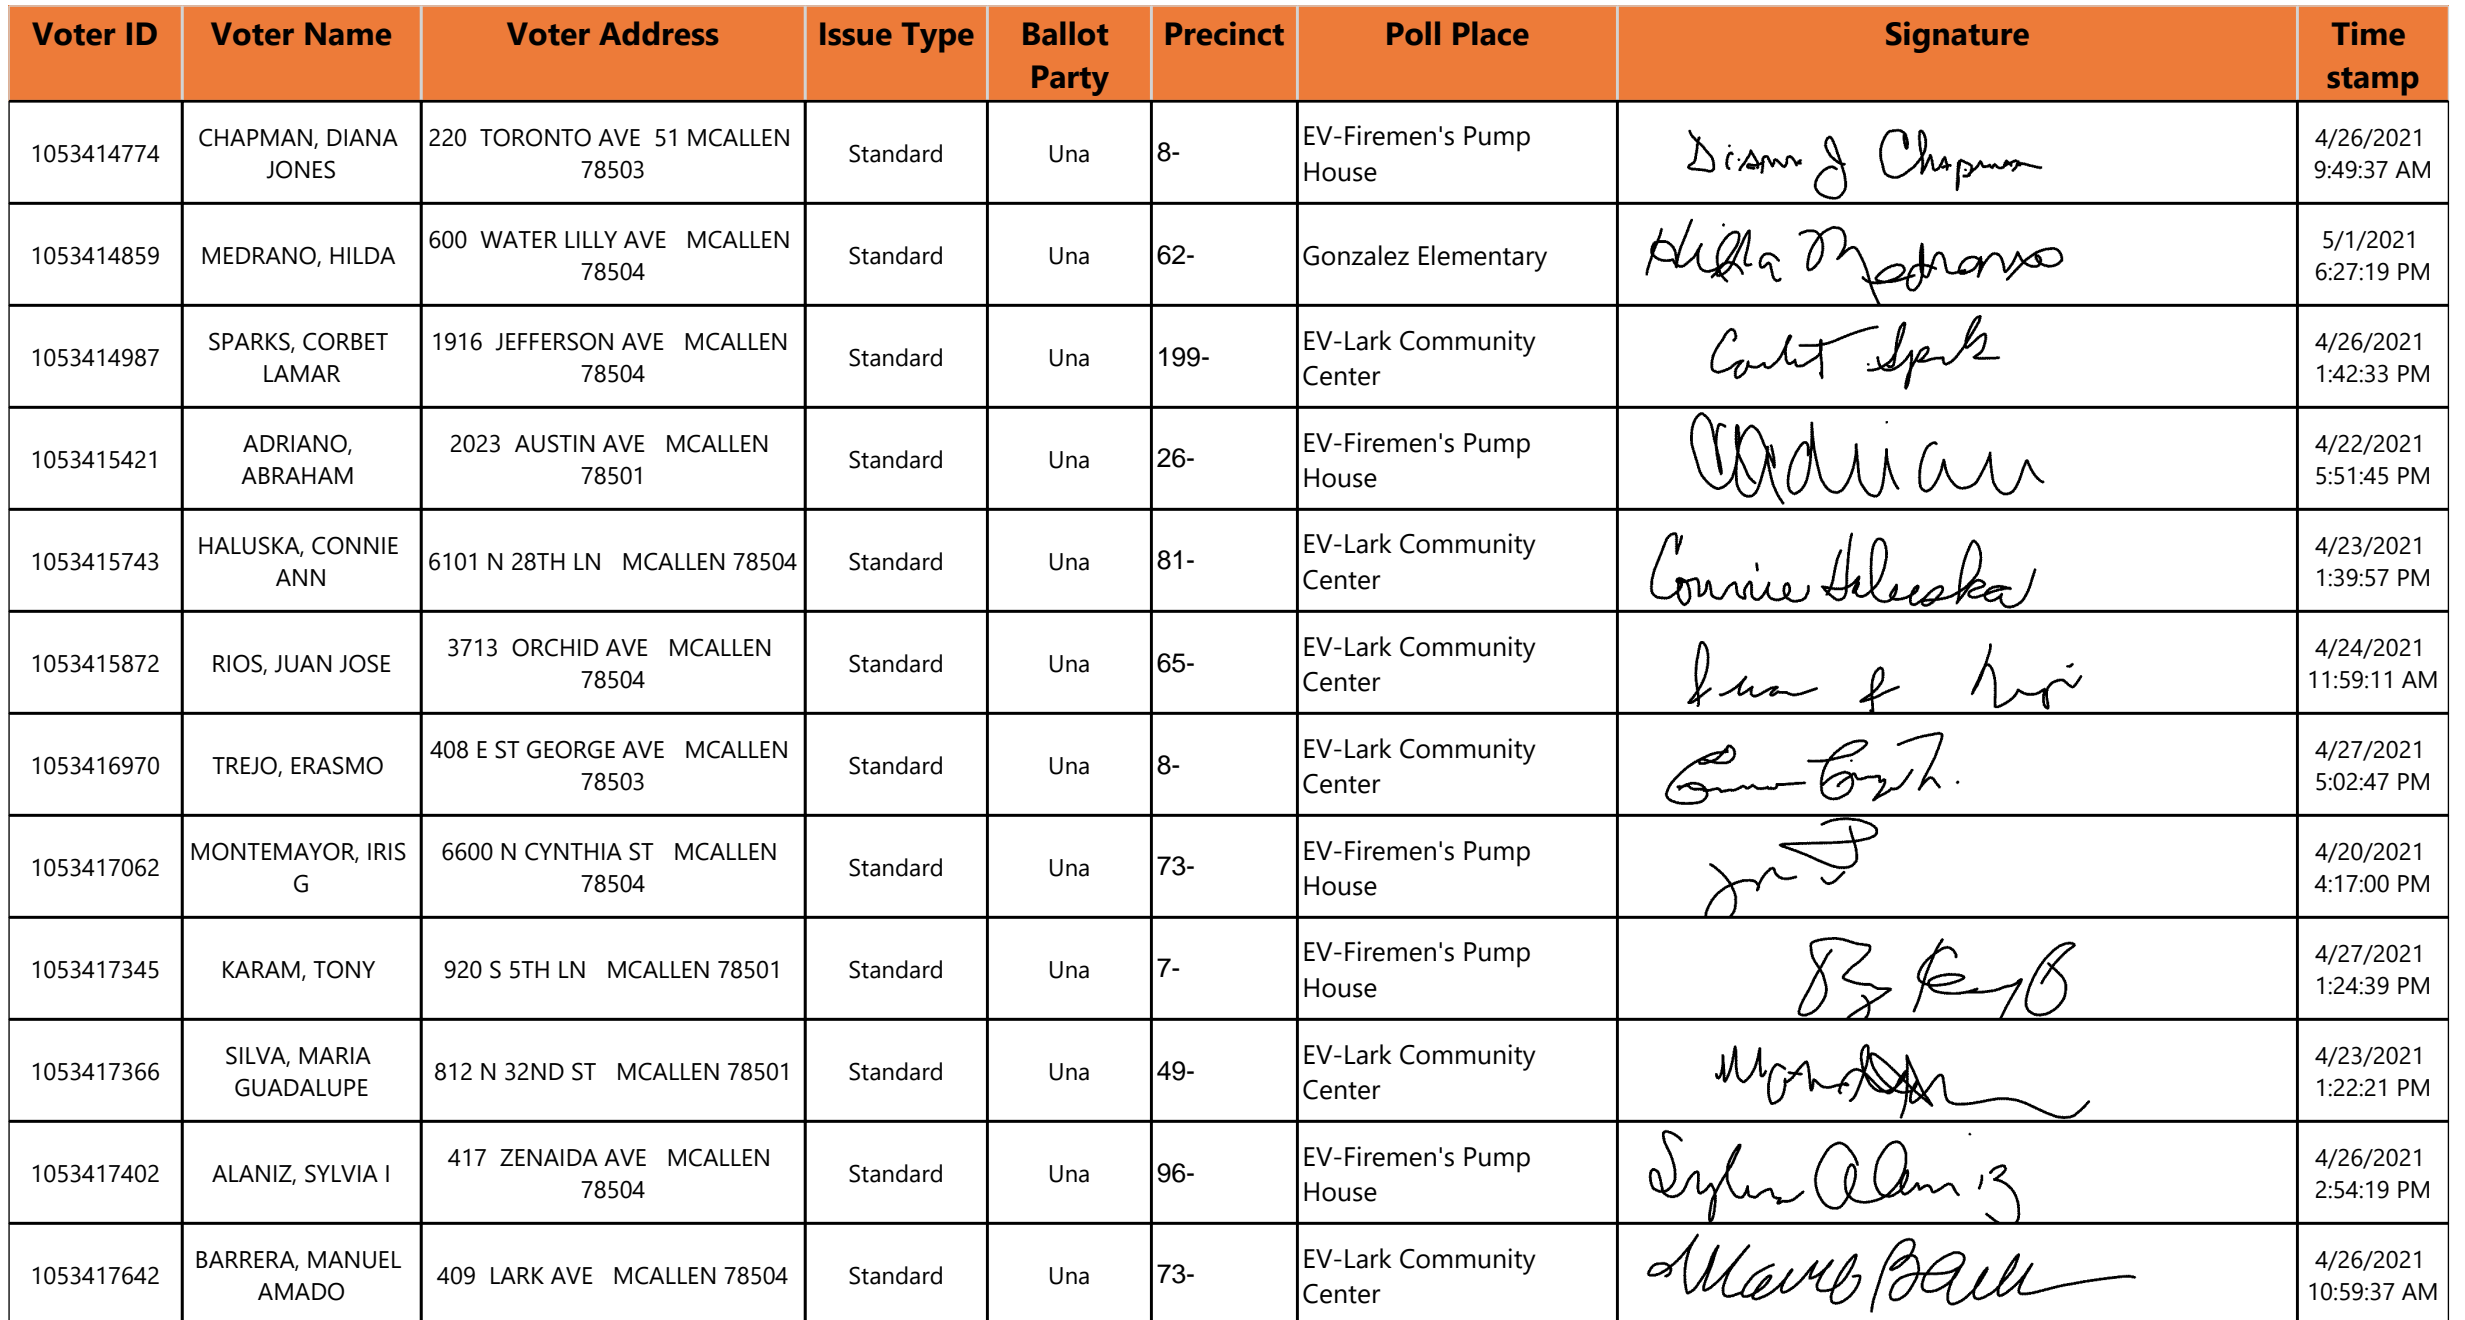 Voter ID Voter Name Voter Address Issue Type Ballot Party Precinct Poll Place Signature Time stamp
1053414774 CHAPMAN, DIANA JONES 220 TORONTO AVE 51 MCALLEN 78503 Standard Una 8- EV-Firemen's Pump House Diana J Chapman 4/26/2021 9:49:37 AM
1053414859 MEDRANO, HILDA 600 WATER LILLY AVE MCALLEN 78504 Standard Una 62- Gonzalez Elementary Hilda Medrano 5/1/2021 6:27:19 PM
1053414987 SPARKS, CORBET LAMAR 1916 JEFFERSON AVE MCALLEN 78504 Standard Una 199- EV-Lark Community Center Corbet Sparks 4/26/2021 1:42:33 PM
1053415421 ADRIANO, ABRAHAM 2023 AUSTIN AVE MCALLEN 78501 Standard Una 26- EV-Firemen's Pump House 4/22/2021 5:51:45 PM
1053415743 HALUSKA, CONNIE ANN 6101 N 28TH LN MCALLEN 78504 Standard Una 81- EV-Lark Community Center Connie Haluska 4/23/2021 1:39:57 PM
1053415872 RIOS, JUAN JOSE 3713 ORCHID AVE MCALLEN 78504 Standard Una 65- EV-Lark Community Center Juan J 4/24/2021 11:59:11 AM
1053416970 TREJO, ERASMO 408 E ST GEORGE AVE MCALLEN 78503 Standard Una 8- EV-Lark Community Center 4/27/2021 5:02:47 PM
1053417062 MONTEMAYOR, IRIS G 6600 N CYNTHIA ST MCALLEN 78504 Standard Una 73- EV-Firemen's Pump House 4/20/2021 4:17:00 PM
1053417345 KARAM, TONY 920 S 5TH LN MCALLEN 78501 Standard Una 7- EV-Firemen's Pump House 4/27/2021 1:24:39 PM
1053417366 SILVA, MARIA GUADALUPE 812 N 32ND ST MCALLEN 78501 Standard Una 49- EV-Lark Community Center 4/23/2021 1:22:21 PM
1053417402 ALANIZ, SYLVIA I 417 ZENAIDA AVE MCALLEN 78504 Standard Una 96- EV-Firemen's Pump House Sylvia Alaniz 4/26/2021 2:54:19 PM
1053417642 BARRERA, MANUEL AMADO 409 LARK AVE MCALLEN 78504 Standard Una 73- EV-Lark Community Center 4/26/2021 10:59:37 AM